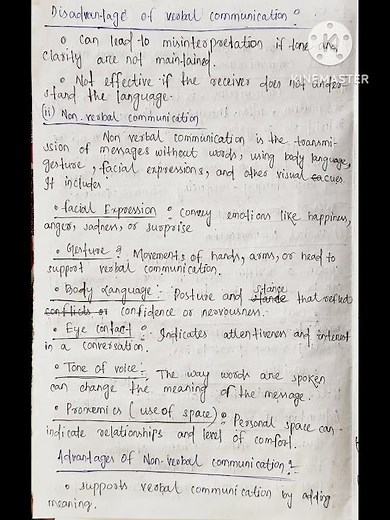 Disadvantage of verbal communication :
• Can lead to misinterpretation if tone and
clarity are not maintained.
• Not effective if the receiver does not under-
stand the language.
KINEMASTER
(ii) Non. verbal communication
Non verbal communication is the transmi-
ssion of messages without words, using body language,
gesture, facial expressions, and other visual cues.
It includes
• Facial Expression : convey emotions like happiness,
anger, sadness, or surprise
• Gesture : Movements of hands, arms, or head to
support verbal communication.
• Body Language : Posture and stance that reflect
conflicts or confidence or nervousness.
• Eye contact : Indicates attentiveness and interest
in a conversation.
• Tone of voice : The way words are spoken
can change the meaning of the message.
• Proxemics (use of space) : Personal space can
indicate relationships and level of comfort.
Advantages of Non-verbal communication :
• supports verbal communication by adding
meaning.